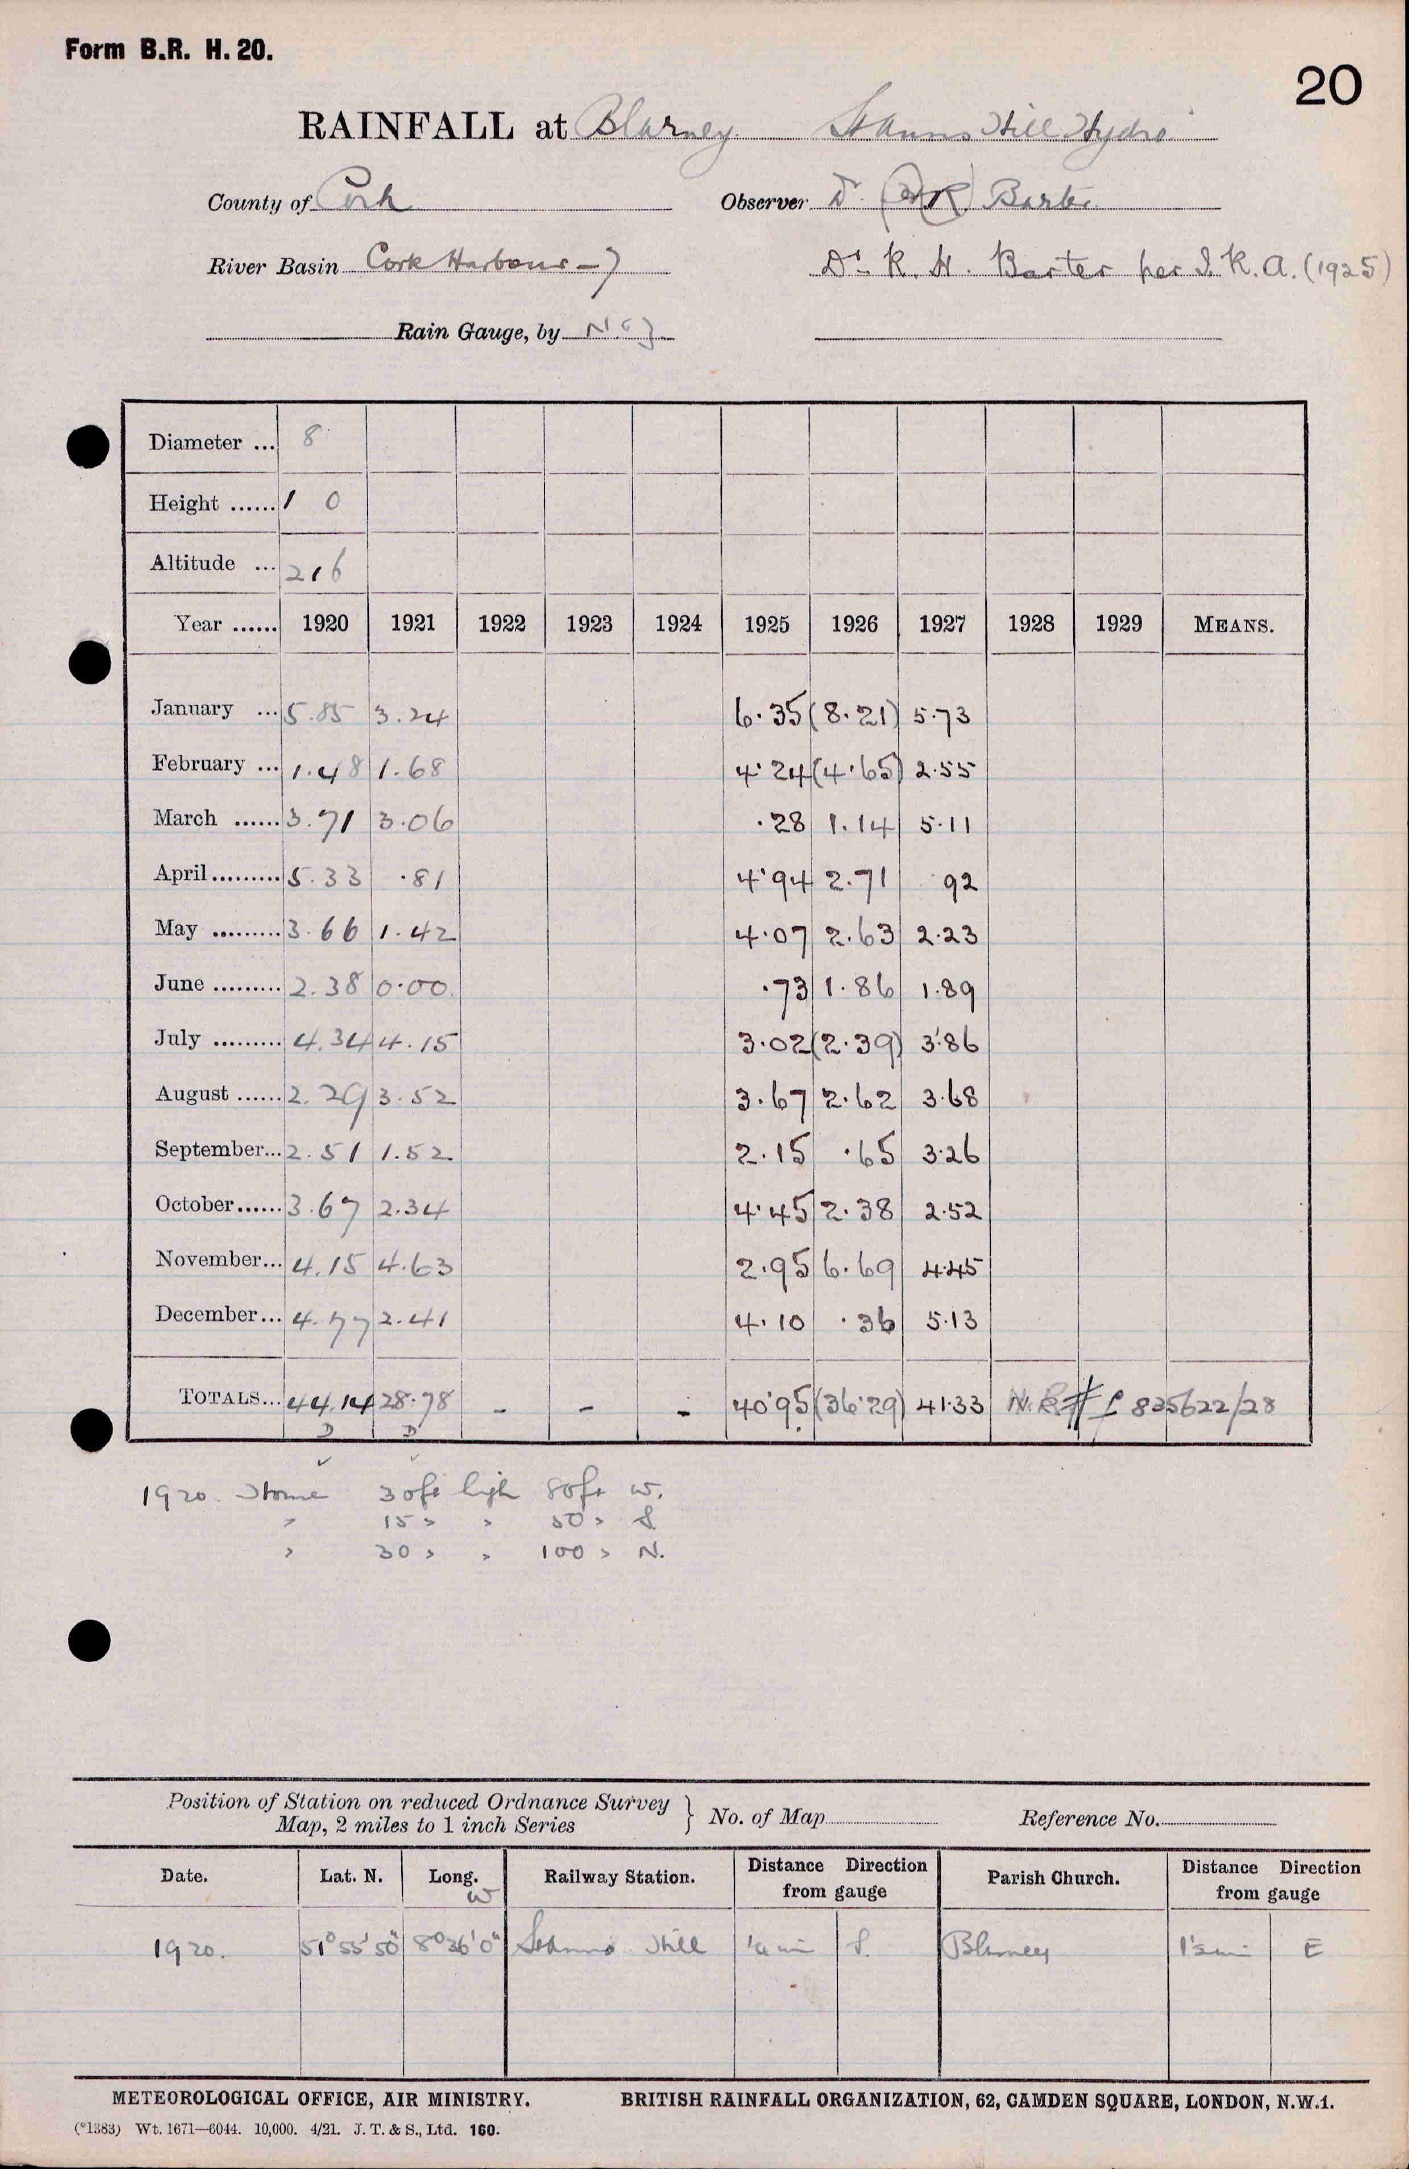 Form B.R. H. 20.
20
RAINFALL at Blarney St Anns Hill Hydro
County of Cork Observer Dr. R Barter
River Basin Cork Harbour - 7 Dr. R. H. Barter per I. R. A. (1925)
Rain Gauge, by
Diameter ... 8
Height ...... 1 0
Altitude ... 216
Year ...... 1920 1921 1922 1923 1924 1925 1926 1927 1928 1929 MEANS.
January ... 5.85 3.24 6.35 (8.21) 5.73
February ... 1.48 1.68 4.24 (4.65) 2.55
March ...... 3.71 3.06 .28 1.14 5.11
April ......... 5.33 .81 4.94 2.71 .92
May ......... 3.66 1.42 4.07 2.63 2.23
June ......... 2.38 0.00 .73 1.86 1.89
July ......... 4.34 4.15 3.02 (2.39) 3.86
August ...... 2.29 3.52 3.67 2.62 3.68
September... 2.51 1.52 2.15 .65 3.26
October...... 3.67 2.34 4.45 2.38 2.52
November... 4.15 4.63 2.95 6.69 4.45
December... 4.77 2.41 4.10 .36 5.13
TOTALS... 44.14 28.78 - - - 40.95 (36.29) 41.33 N.R. 835622/28
D D
1920 House 30ft high 80ft W.
" 15 " " 50 " S.
" 30 " " 100 " N.
Position of Station on reduced Ordnance Survey
Map, 2 miles to 1 inch Series } No. of Map Reference No.
Date. Lat. N. Long. W Railway Station. Distance Direction from gauge Parish Church. Distance Direction from gauge
1920. 51° 55' 50" 8° 36' 0" St Anns Hill 1/4 mi S. Blarney mi E
METEOROLOGICAL OFFICE, AIR MINISTRY. BRITISH RAINFALL ORGANIZATION, 62, CAMDEN SQUARE, LONDON, N.W.1.
(*1383) Wt. 1671—6044. 10,000. 4/21. J. T. & S., Ltd. 160.